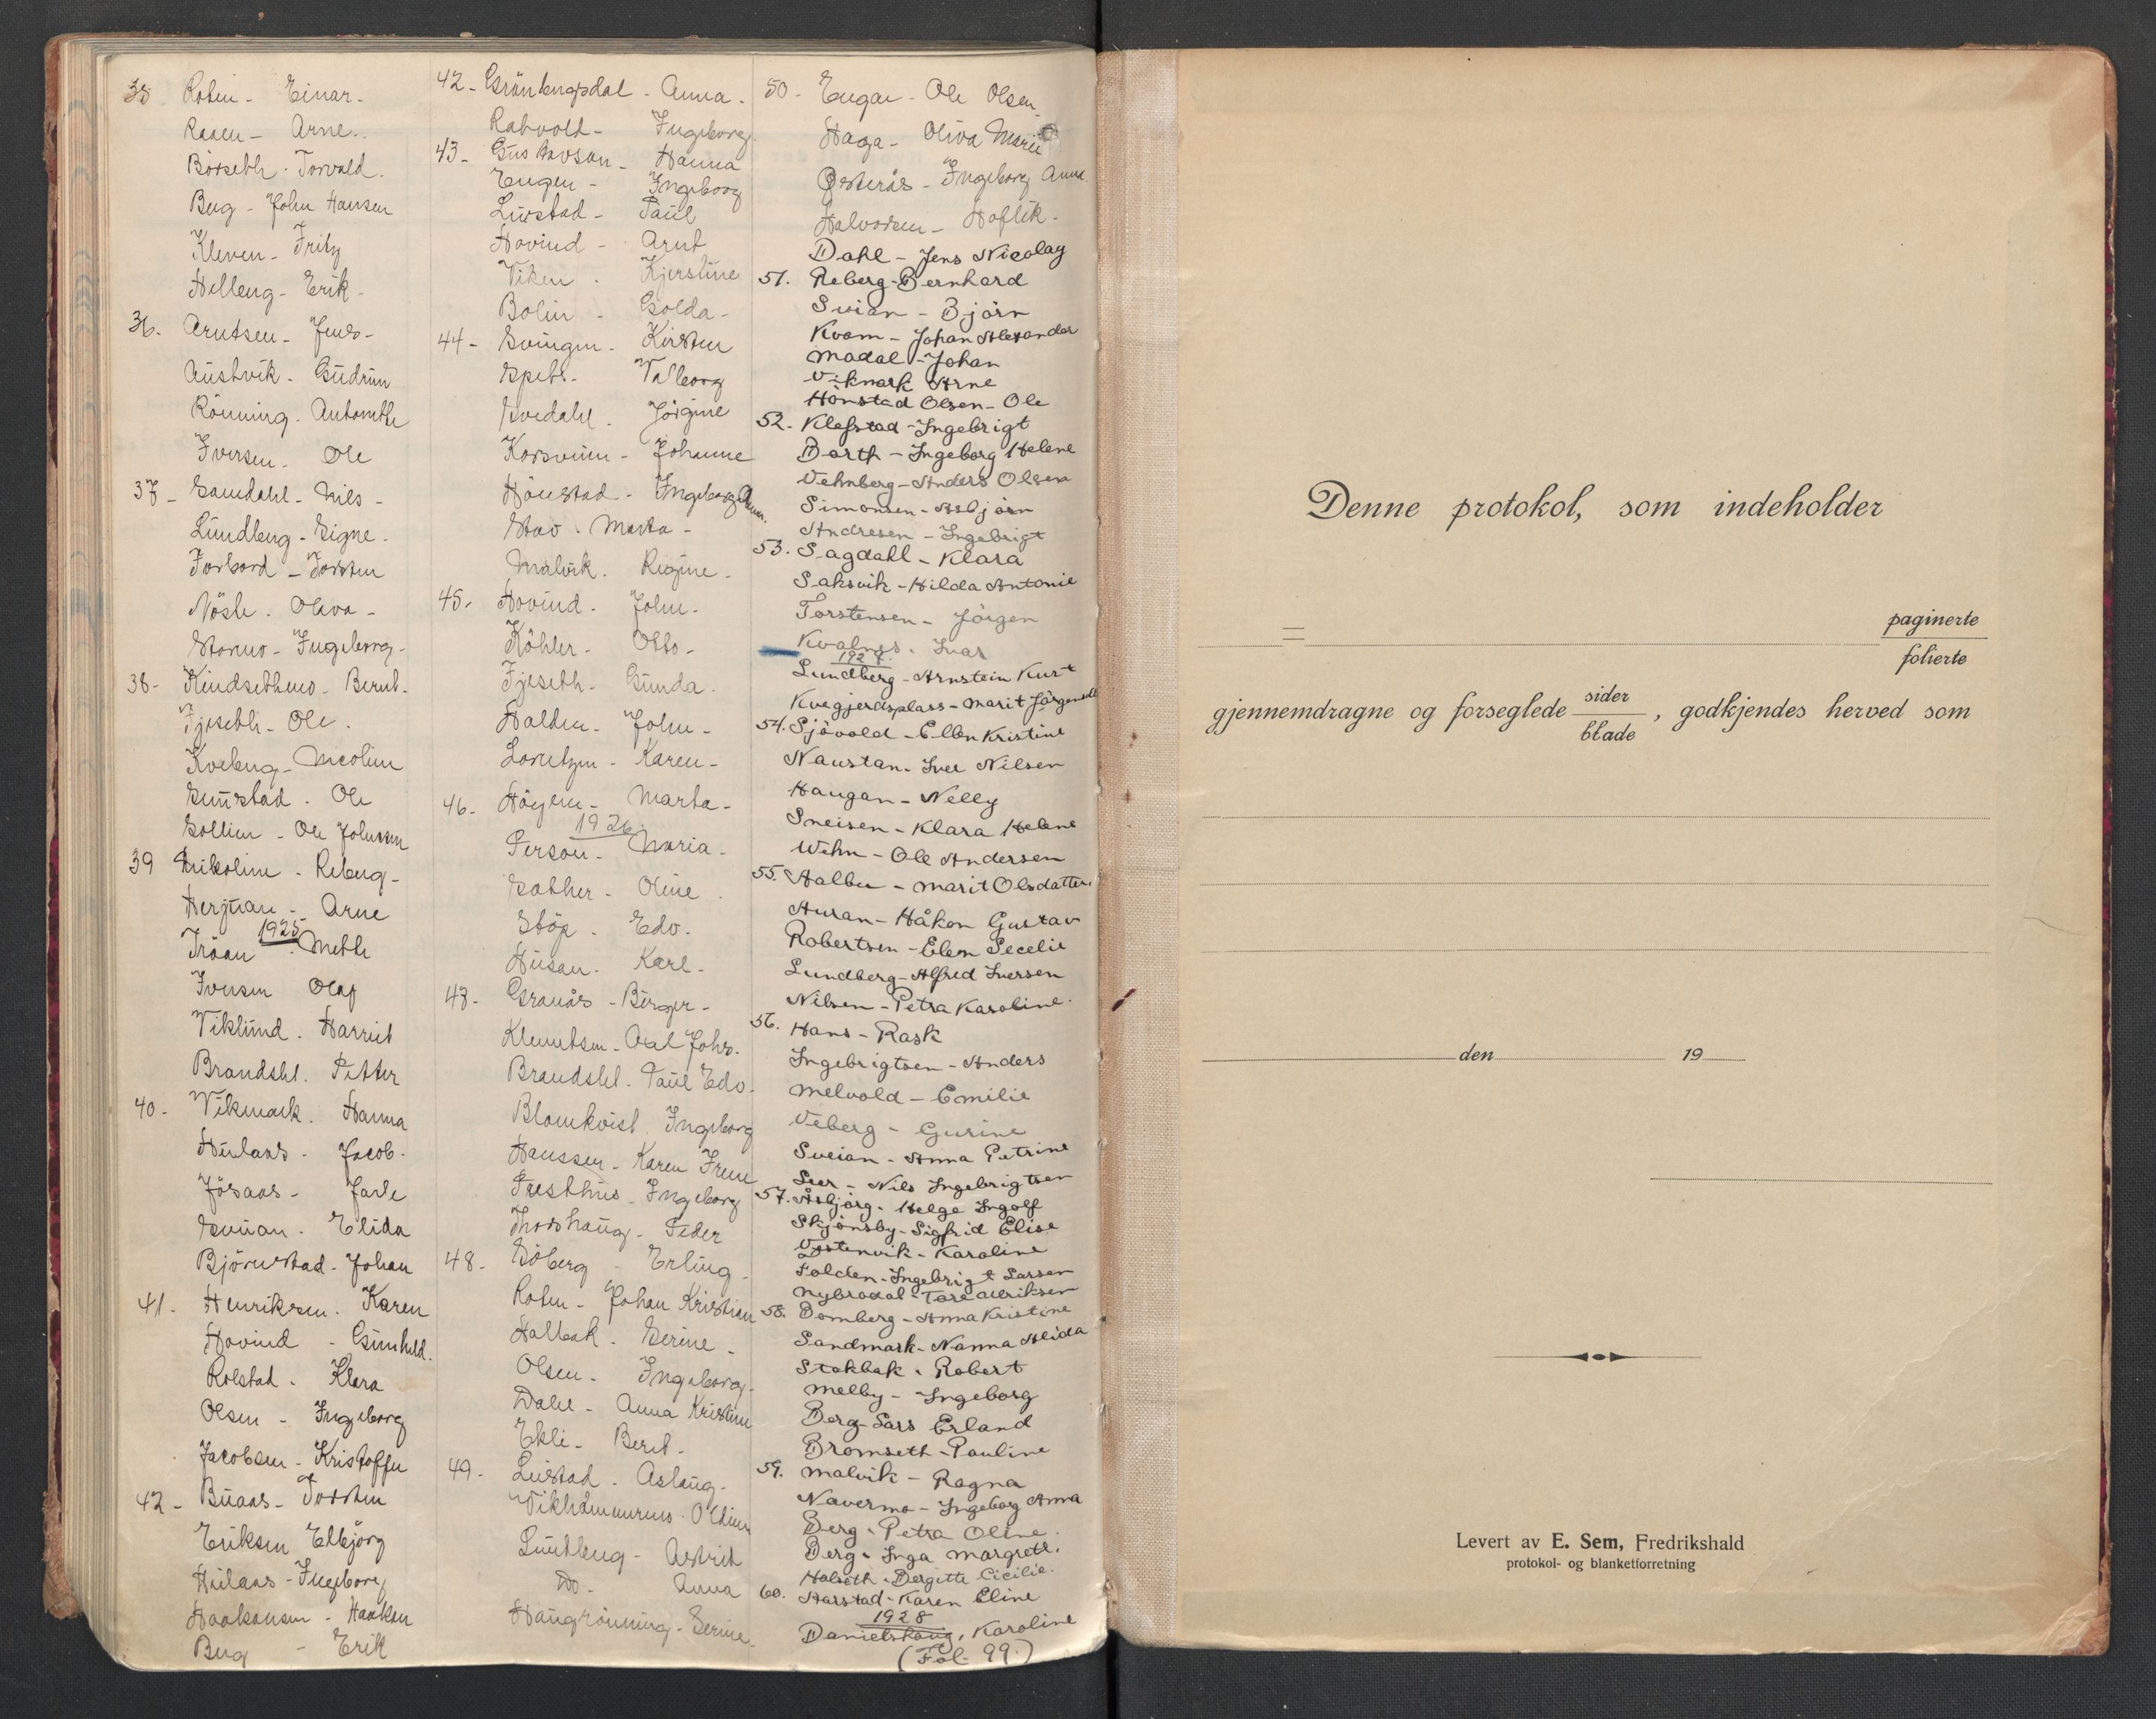 35 Rotin - Einar -
Raaen - Arne.
Börseth - Torvald.
Berg - John Hansen
Kleven - Fritz
Helleng - Erik -
36. Arntsen - Jens -
Austvik - Gudrun
Rönning - Antonette
Iversen - Ole
37 - Samdahl - Nils -
Lundberg - Signe -
Forbord - Torsten
Nösle - Olava -
Stormo - Ingeborg -
38 - Kindsethmo - Bernt.
Fjeseth - Ole.
Kveberg - Nicoline
Ole
Sollien - Ole Johnsen
39 Nikoline - Reberg -
Herjuan - Arne
1925
Tröan - Mette
Iversen Olaf
Viklund - Harriet
Brandshl. Petter
40 - Vikmark. Hanna
Hulaas - Jacob -
Jösaas - Jarle
Svean - Elida
Björnstad - Johan
41 - Henriksen. Karen
Hovind - Gunhild.
Rolstad - Klara
Olsen - Ingeborg
Jacobsen - Kristoffer
42 - Buaas - Torsten
Eriksen Elbjörg
Hulaas - Ingeborg
Haakonsen - Haakon
Berg - Erik
42 - Grönbergsdal - Anna -
Ratvold - Ingeborg
43 - Gustavson - Hanna
Eugen - Ingeborg
Liustad - Paul
Hovind - Arnt
Viken - Kjerstine
Bolin - Golda -
44 - Svingen - Kirsten
Valborg
Svedahl - Jörgine
Korsveien - Johanne
Hönstad - Ingeborg Anna.
Stav - Marta -
Malvik. Regine -
45. Hovind - John -
Köhler - Otto -
Fjeseth - Gunda.
Halten - John -
Lorntzen - Karen -
46 - Höyem - Marta -
1926
Person - Maria -
Sather - Oline
Stöp - Edv.
Husan - Karl -
47 - Granås - Birger -
Klemetsen - Axel Johs.
Brandshl. Paul Edv.
Blomkvist Ingeborg
Haussen - Karen Irene
Presthus - Ingeborg
Thorshaug - Peder
48 - Söberg - Erling -
Roten - Johan Kristian
Halbak - Serine -
Olsen - Ingeborg -
Dahl - Anna Kristine
Ekli - Berit -
49 - Leistad - Aslaug -
Lundberg - Astrid
Do - Anna
Haugrönning - Serine -
50 - Eugan - Ole Olsen
Haga - Oliva Marie
Österås - Ingeborg Anna
Halvorsen - Hoflik -
Dahl - Jens Nicolay
51. Reberg - Bernhard
Svian - Björn
Kvam - Johan Alexander
Madal - Johan
Vikmark Arne
Hönstad Olsen - Ole
52. Klefstad - Ingebrigt
Barth - Ingeborg Helene
Vehnberg - Anders Olsen
Simonsen - Asbjörn
Andresen - Ingebrigt
53. Sagdahl - Klara
Saksvik - Hilda Antonie
Torstensen - Jörgen
Kvalnes - Ivar
1927
Lundberg - Arnstein Kurt
Kvegjerdsplass - Marit Jörgensdt
54. Sjövold - Ellen Kristine
Naustan - Iver Nilsen
Haugan - Nelly
Sneisen - Klara Helene
Wehn - Ole Andersen
55. Aalbu - Marit Olsdatter.
Auran - Håkon Gustav
Robertsen - Elen Secelie
Lundberg - Alfred Iversen
Nilsen - Petra Karoline.
56. Hans - Rask
Ingebrigtsen - Anders
Melvold - Emilie
Veberg - Gurine
Sveian - Anna Petrine
Leer - Nils Ingebrigtsen
57. Åsbjörg - Helge Ingolf
Skjönsby - Sigfrid Elise
Vestenvik - Karoline
Folden - Ingebrigt Larsen
Nybrodal - Tore Ulriksen
58. Domberg - Anna Kristine
Sandmark - Nanna Alida
Stokbak - Robert
Melby - Ingeborg
Berg - Lars Erland
Bromseth - Pauline
59. Malvik - Ragna
Navermo - Ingeborg Anna
Berg - Petra Oline.
Berg - Inga Margrete.
Halseth - Bergitte Cicilie.
60. Harstad - Karen Eline
1928
Danielshaug, Karoline
(Fol. 99.)
Denne protokol, som indeholder
paginerte
folierte
gjennemdragne og forseglede sider blade, godkjendes herved som
den 19
Levert av E. Sem, Fredrikshald
protokol- og blanketforretning